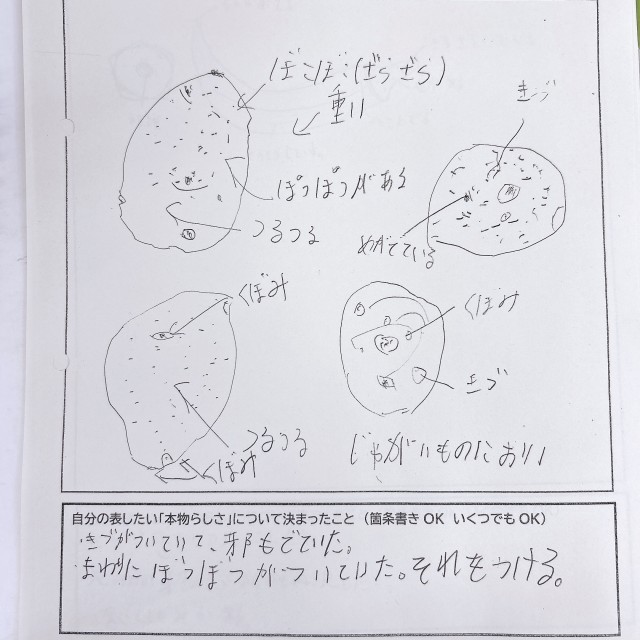 ぼこぼこ(ざらざら)
重い
きづ
ぽつぽつがある
つるつる
めがでている
くぼみ
くぼみ
きづ
つるつる
くぼみ
じゃがいものにおい
自分の表したい「本物らしさ」について決まったこと（箇条書き OK いくつでも OK）
きづがついていて、芽もでていた。
まわりにぽつぽつがついていた。それをつける。